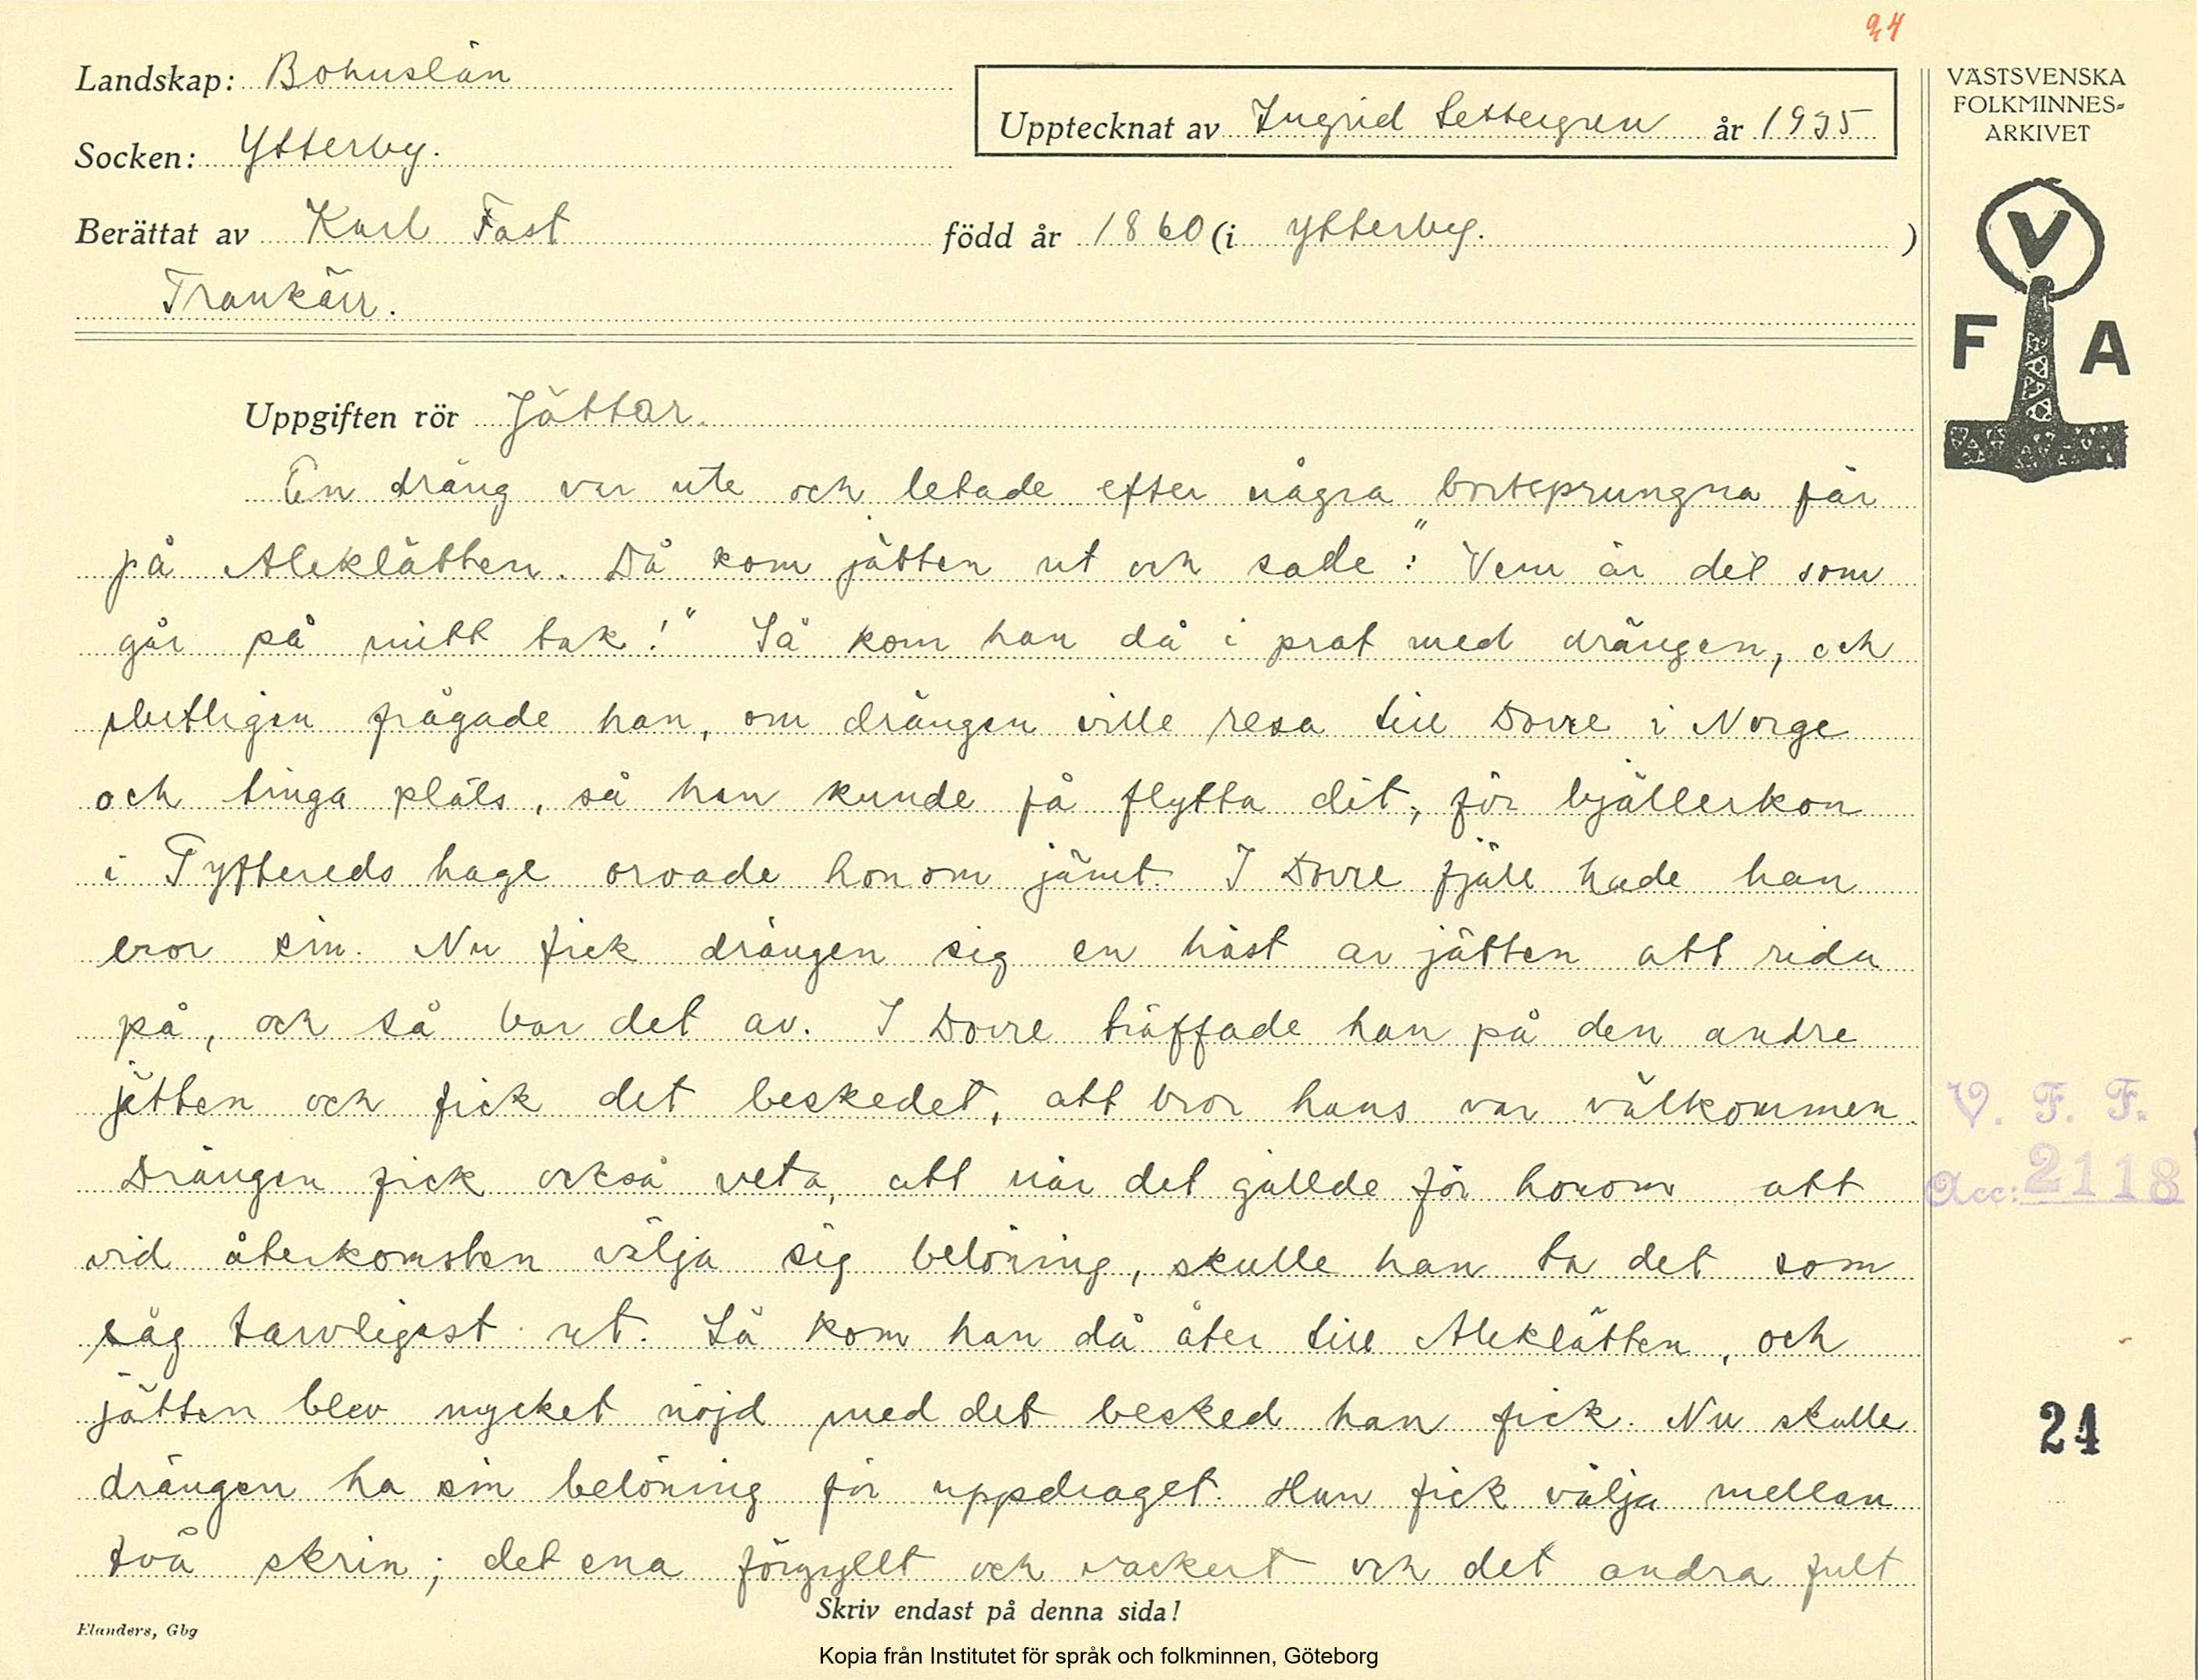 94
Landskap: Bohuslän
Upptecknat av Ingrid Settergren år 1935
Socken: Ytterby.
Berättat av Karl Fast född år 1860 (i Ytterby.)
Trankärr.
VÄSTSVENSKA
FOLKMINNES-
ARKIVET
V
F A
Uppgiften rör Jättar.
En dräng var ute och letade efter några bortsprungna får
på Aleklätten. Då kom jätten ut och sade: "Vem är det som
går på mitt tak!" Så kom han då i prat med drängen, och
slutligen frågade han, om drängen ville resa till Dovre i Norge
och tinga plats, så han kunde få flytta dit, för bjällerkon
i Tyftereds hage oroade honom jämt. I Dovre fjäll hade han
bror sin. Nu fick drängen sig en häst av jätten att rida
på, och så bar det av. I Dovre träffade han på den andre
jätten och fick det beskedet, att bror hans var välkommen.
Drängen fick också veta, att när det gällde för honom att
vid återkomsten välja sig belöning, skulle han ta det som
såg tarvligast ut. Så kom han då åter till Aleklätten, och
jätten blev mycket nöjd med det besked han fick. Nu skulle
drängen ha sin belöning för uppdraget. Han fick välja mellan
två skrin; det ena förgyllt och vackert och det andra fult
V. F. F.
Acc: 2118
24
Skriv endast på denna sida!
Elanders, Gbg
Kopia från Institutet för språk och folkminnen, Göteborg